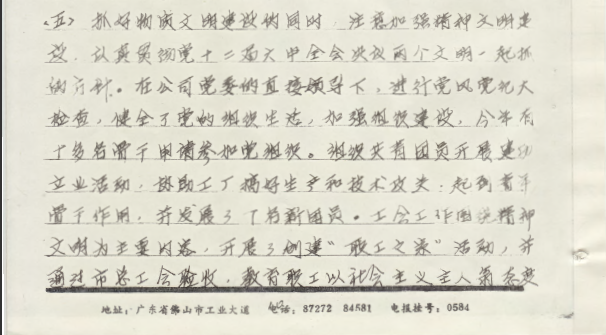 〈五〉抓好物质文明建设的同时，注意加强精神文明建
设，认真贯彻党十二届六中全会决议两个文明一起抓
的方针。在公司党委的直接领导下，进行党风党纪大
检查，健全了党的组织生活，加强组织建设，今年有
十多名骨干申请参加党组织。组织共青团员开展建功
立业活动，协助工厂搞好生产和技术攻关，起到青年
骨干作用，并发展了 名新团员。工会工作围绕精神
文明为主要内容，开展了创建“职工之家”活动，并
通过市总工会验收，教育职工以社会主义主人翁态度
地址：广东省佛山市工业大道 电话：87272 84581 电报挂号：0584